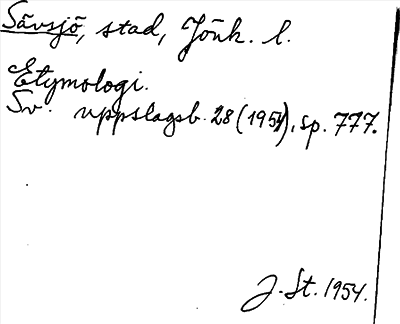 Sävsjö, stad, Jönk. l.
Etymologi.
Sv. uppslagsb. 28 (1954), sp. 777.
J. St. 1954.